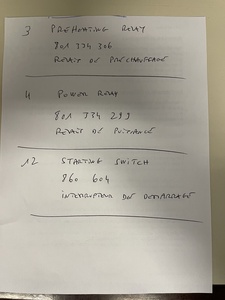 3 PREHEATING RELAY
801 334 306
RELAIS DE PRECHAUFFAGE
4 POWER RELAY
801 334 293
RELAIS DE PUISSANCE
12 STARTING SWITCH
860 604
INTERRUPTEUR DE DEMARRAGE